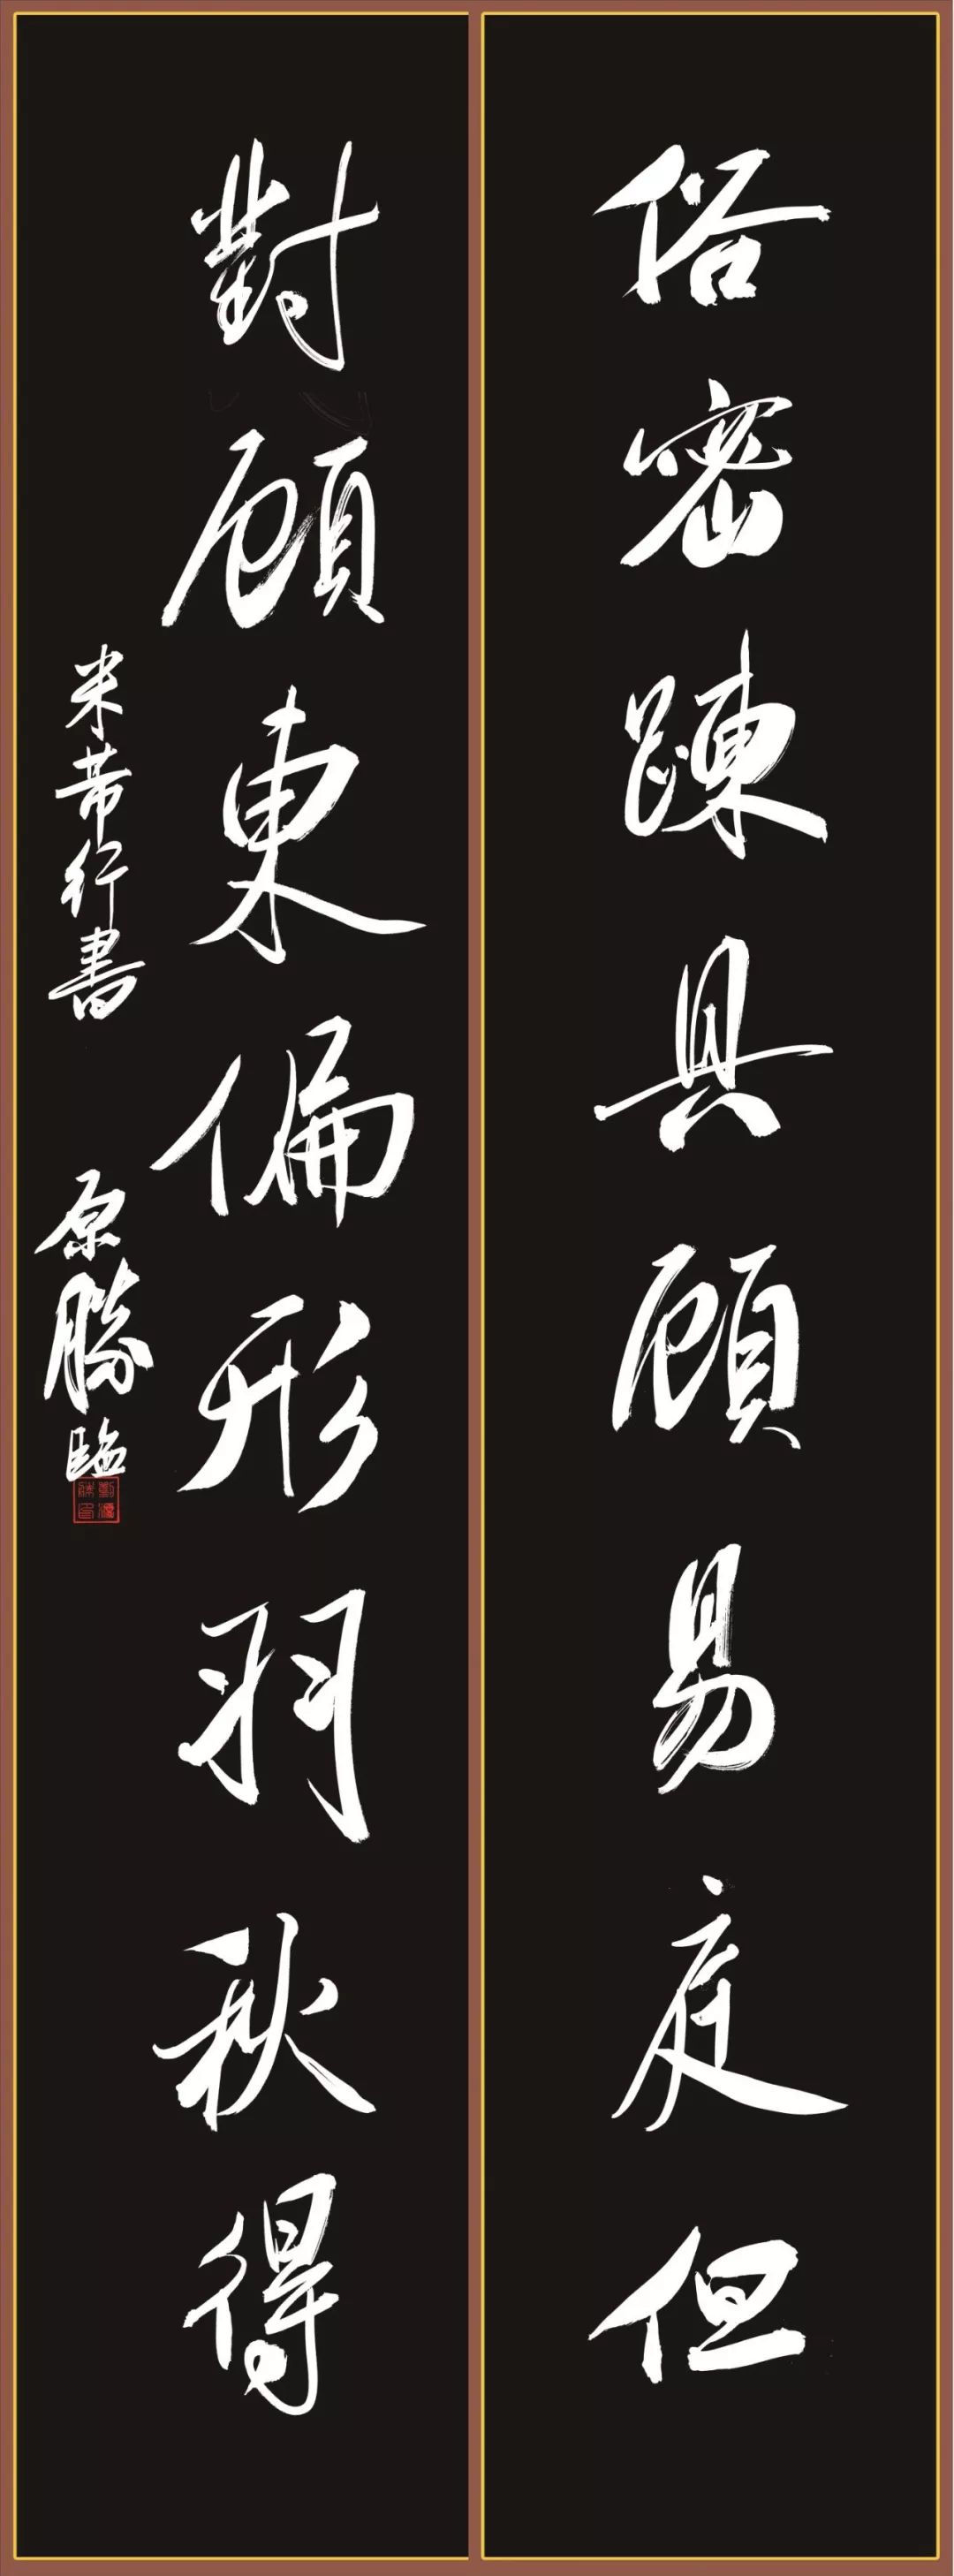 俗密踈具顾易庭但
對顾東偏形羽秋得
米芾行書 原勝臨